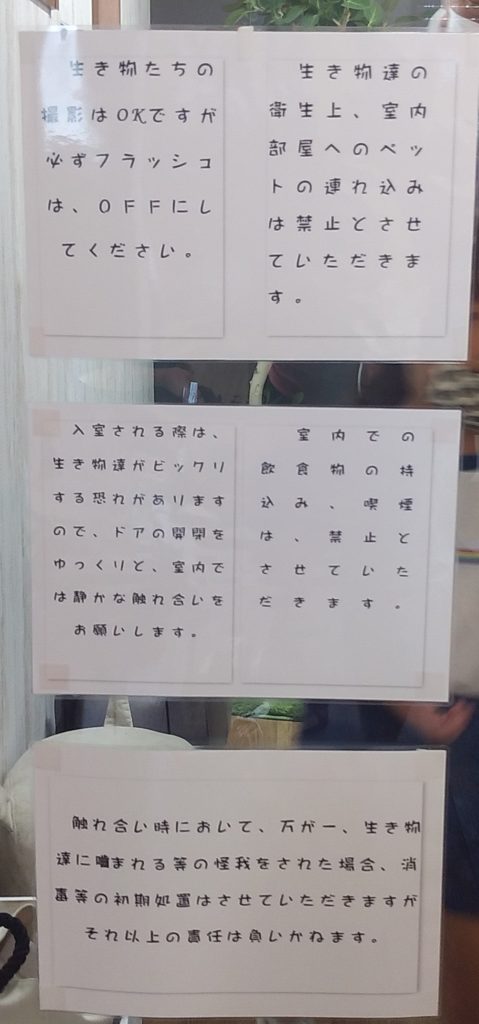 生き物たちの
撮影はOKですが
必ずフラッシュ
は、OFFにし
てください。
生き物達の
衛生上、室内
部屋へのペッ
トの連れ込み
は禁止とさせ
ていただきま
す。
入室される際は、
生き物達がビックリ
する恐れがあります
ので、ドアの開閉を
ゆっくりと、室内で
は静かな触れ合いを
お願いします。
室内での
飲食物の持
込み、喫煙
は、禁止と
させていた
だきます。
触れ合い時において、万が一、生き物
達に噛まれる等の怪我をされた場合、消
毒等の初期処置はさせていただきますが
それ以上の責任は負いかねます。